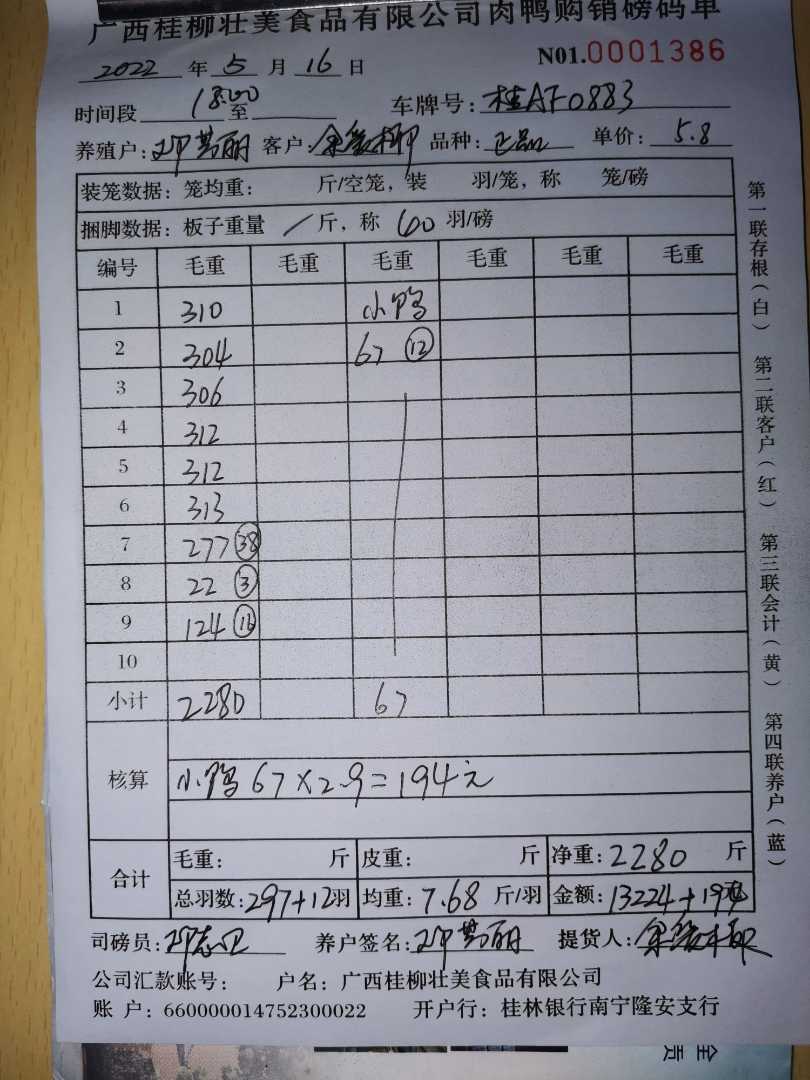 广西桂柳壮美食品有限公司肉鸭购销磅码单
2022 年 5 月 16 日 N01.0001386
时间段 18:00 至 车牌号: 桂AF0883
养殖户: 邓芳丽 客户: 品种: 正品 单价: 5.8
装笼数据: 笼均重: 斤/空笼, 装 羽/笼, 称 笼/磅
捆脚数据: 板子重量 / 斤, 称 60 羽/磅
编号 毛重 毛重 毛重 毛重 毛重 毛重
1 310 小鸭
2 304 67 ⑫
3 306
4 312
5 312
6 313
7 277 ㊳
8 22 ③
9 124 ⑯
10
小计 2280 67
核算 小鸭 67×2.9=194元
合计 毛重: 斤 皮重: 斤 净重: 2280 斤
总羽数: 297+12羽 均重: 7.68 斤/羽 金额: 13224+194元
司磅员: 邓志卫 养户签名: 邓芳丽 提货人:
公司汇款账号: 户名: 广西桂柳壮美食品有限公司
账 户: 660000014752300022 开户行: 桂林银行南宁隆安支行
第一联存根(白) 第二联客户(红) 第三联会计(黄) 第四联养户(蓝)